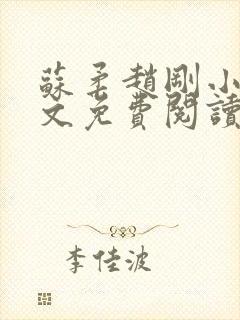 蘇柔趙剛小
文免費閱讀
李佳波